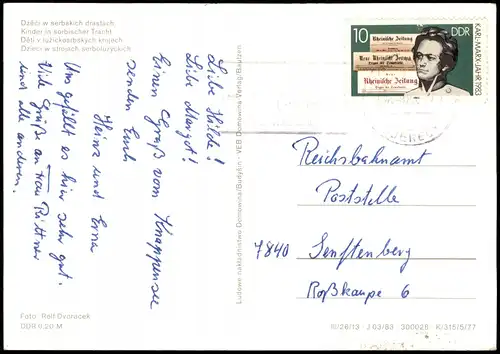 Dźěći w serbskich drastach
Kinder in sorbischer Tracht
Děti v lužickosrbských krojich
Dzieci w strojach serbołużyckich
Liebe Hilde!
Liebe Margot!
Einen Gruß vom Knappensee
senden Euch
Heinz und Erna
Uns gefällt es hier sehr gut.
Viele Grüße an Frau Rittner
und alle anderen.
Foto: Rolf Dvoracek
DDR 0,20 M
Ludowe nakładnistwo Domowina/Budyšin · VEB Domowina-Verlag/Bautzen
10
DDR
KARL-MARX-JAHR 1983
Rheinische Zeitung
Neue Rheinische Zeitung
Organ der Demokratie
Rheinische Zeitung
Organ der Demokratie
Reichsbahnamt
Poststelle
7840 Senftenberg
Roßkaupe 6
III/26/13 · J 03/83 300028 K/315/5/77